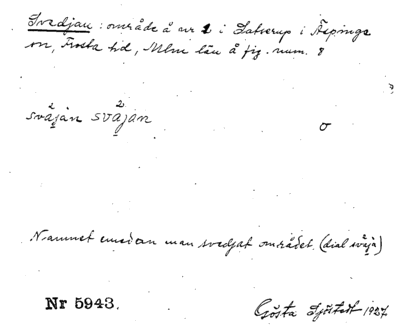 Svedjan: område å nr 1 i Satserup i Äspinge
sn, Frosta hd, Mlm län å fig. num. 8
svä̀jàn svä̀jàn o
Namnet emedan man svedjat området. (dial svä̀ja)
Nr 5943. Gösta Sjöstedt 1927